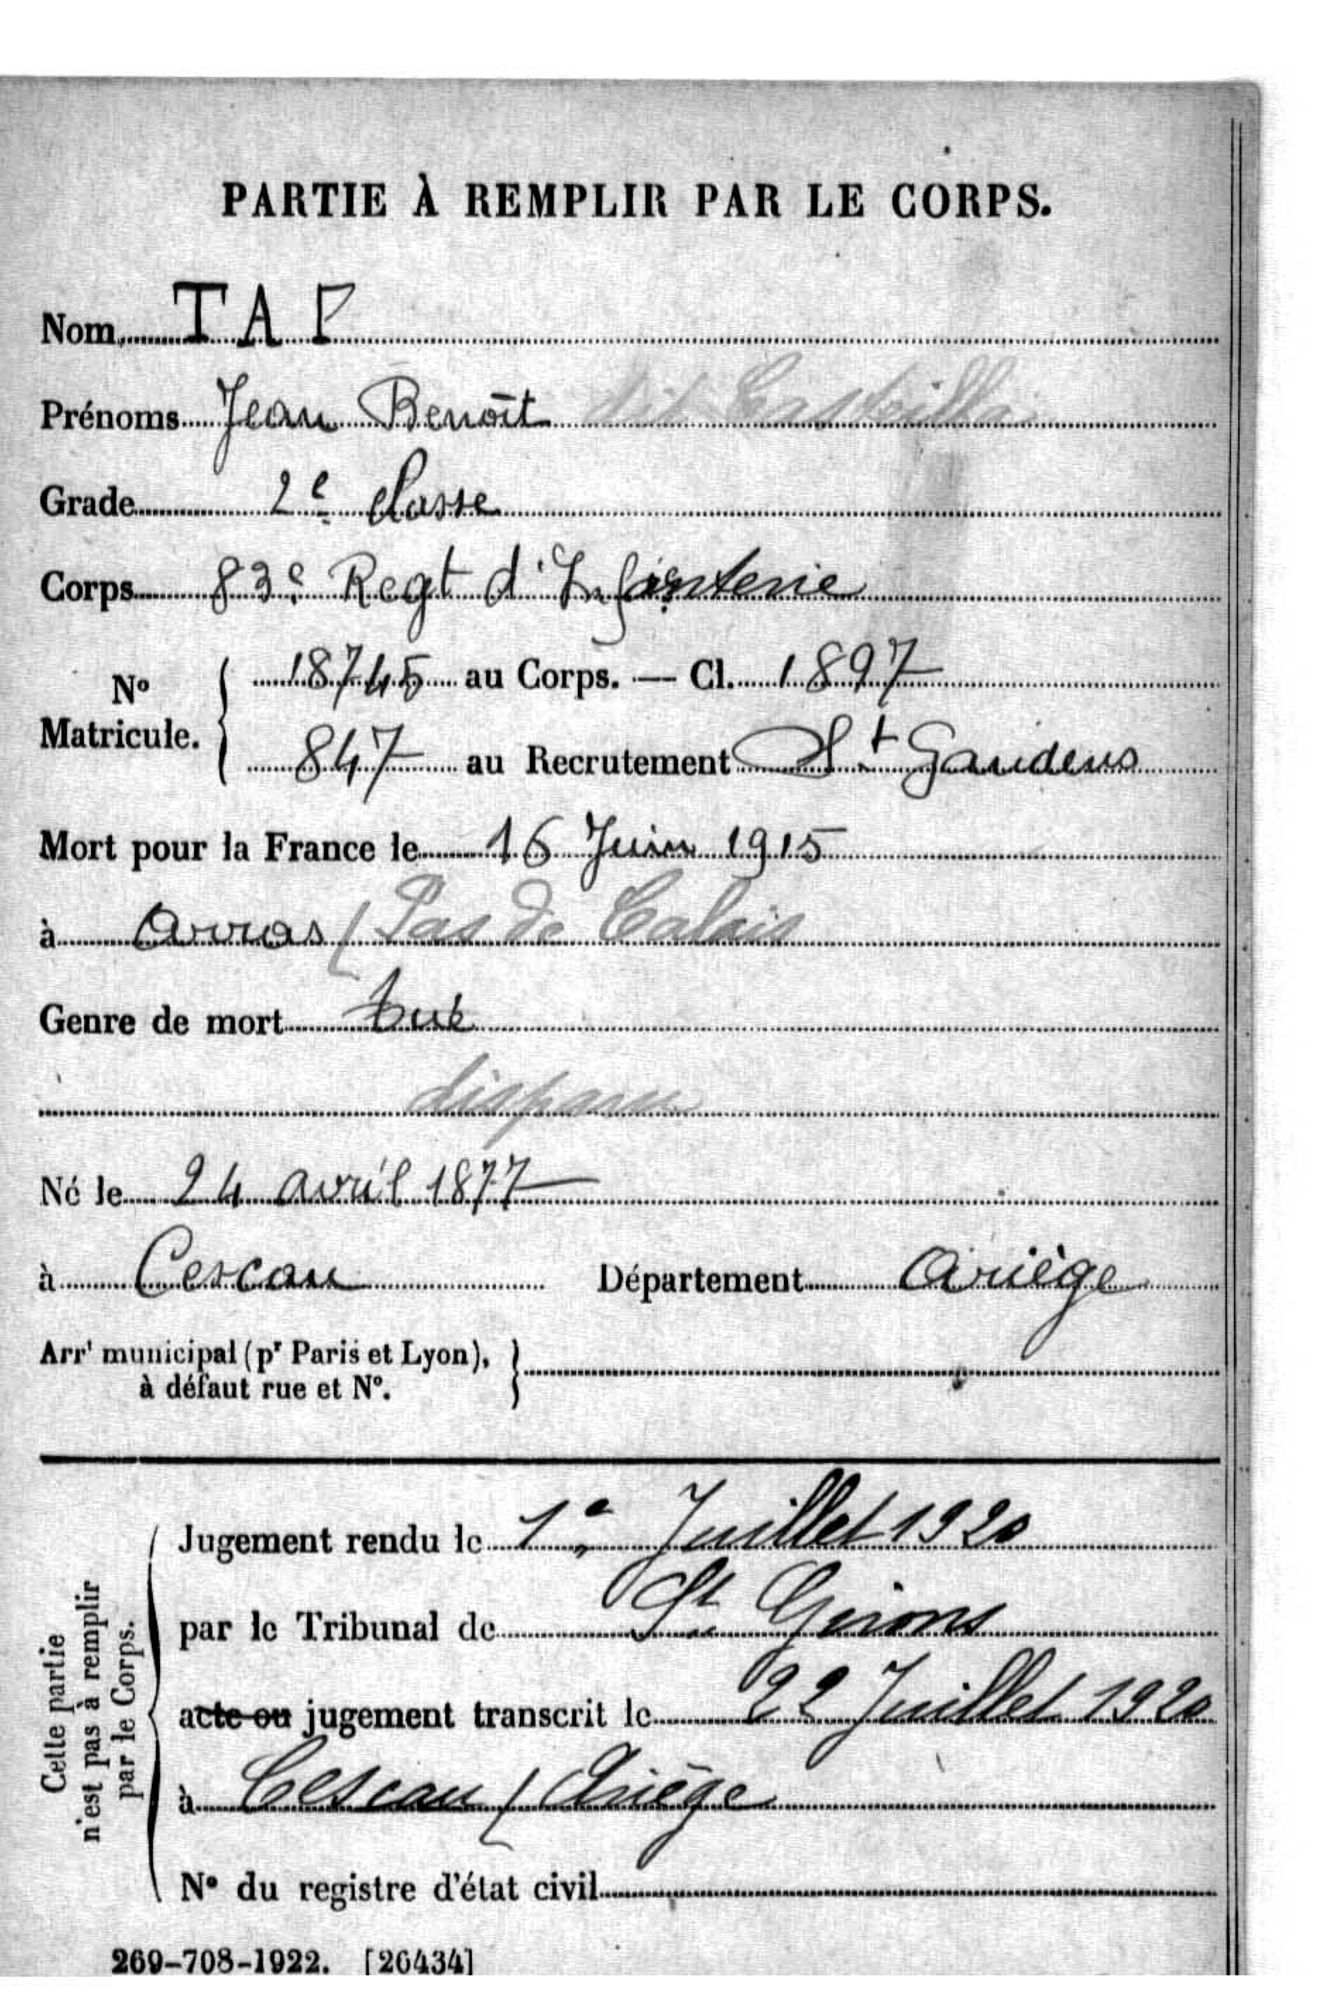 PARTIE À REMPLIR PAR LE CORPS.
Nom TAP
Prénoms Jean Benoît dit Casteilla
Grade 2e classe
Corps 83e Regt d'Infanterie
No Matricule. { 18745 au Corps. — Cl. 1897
847 au Recrutement St Gaudens
Mort pour la France le 16 Juin 1915
à Arras (Pas de Calais
Genre de mort tué
disparu
Né le 24 avril 1877
à Cescau Département Ariège
Arrt municipal (pr Paris et Lyon), }
à défaut rue et No.
Cette partie
n'est pas à remplir
par le Corps.
Jugement rendu le 1er Juillet 1920
par le Tribunal de St Girons
acte ou jugement transcrit le 22 Juillet 1920
à Cescau (Ariège
No du registre d'état civil
269-708-1922. [26434]